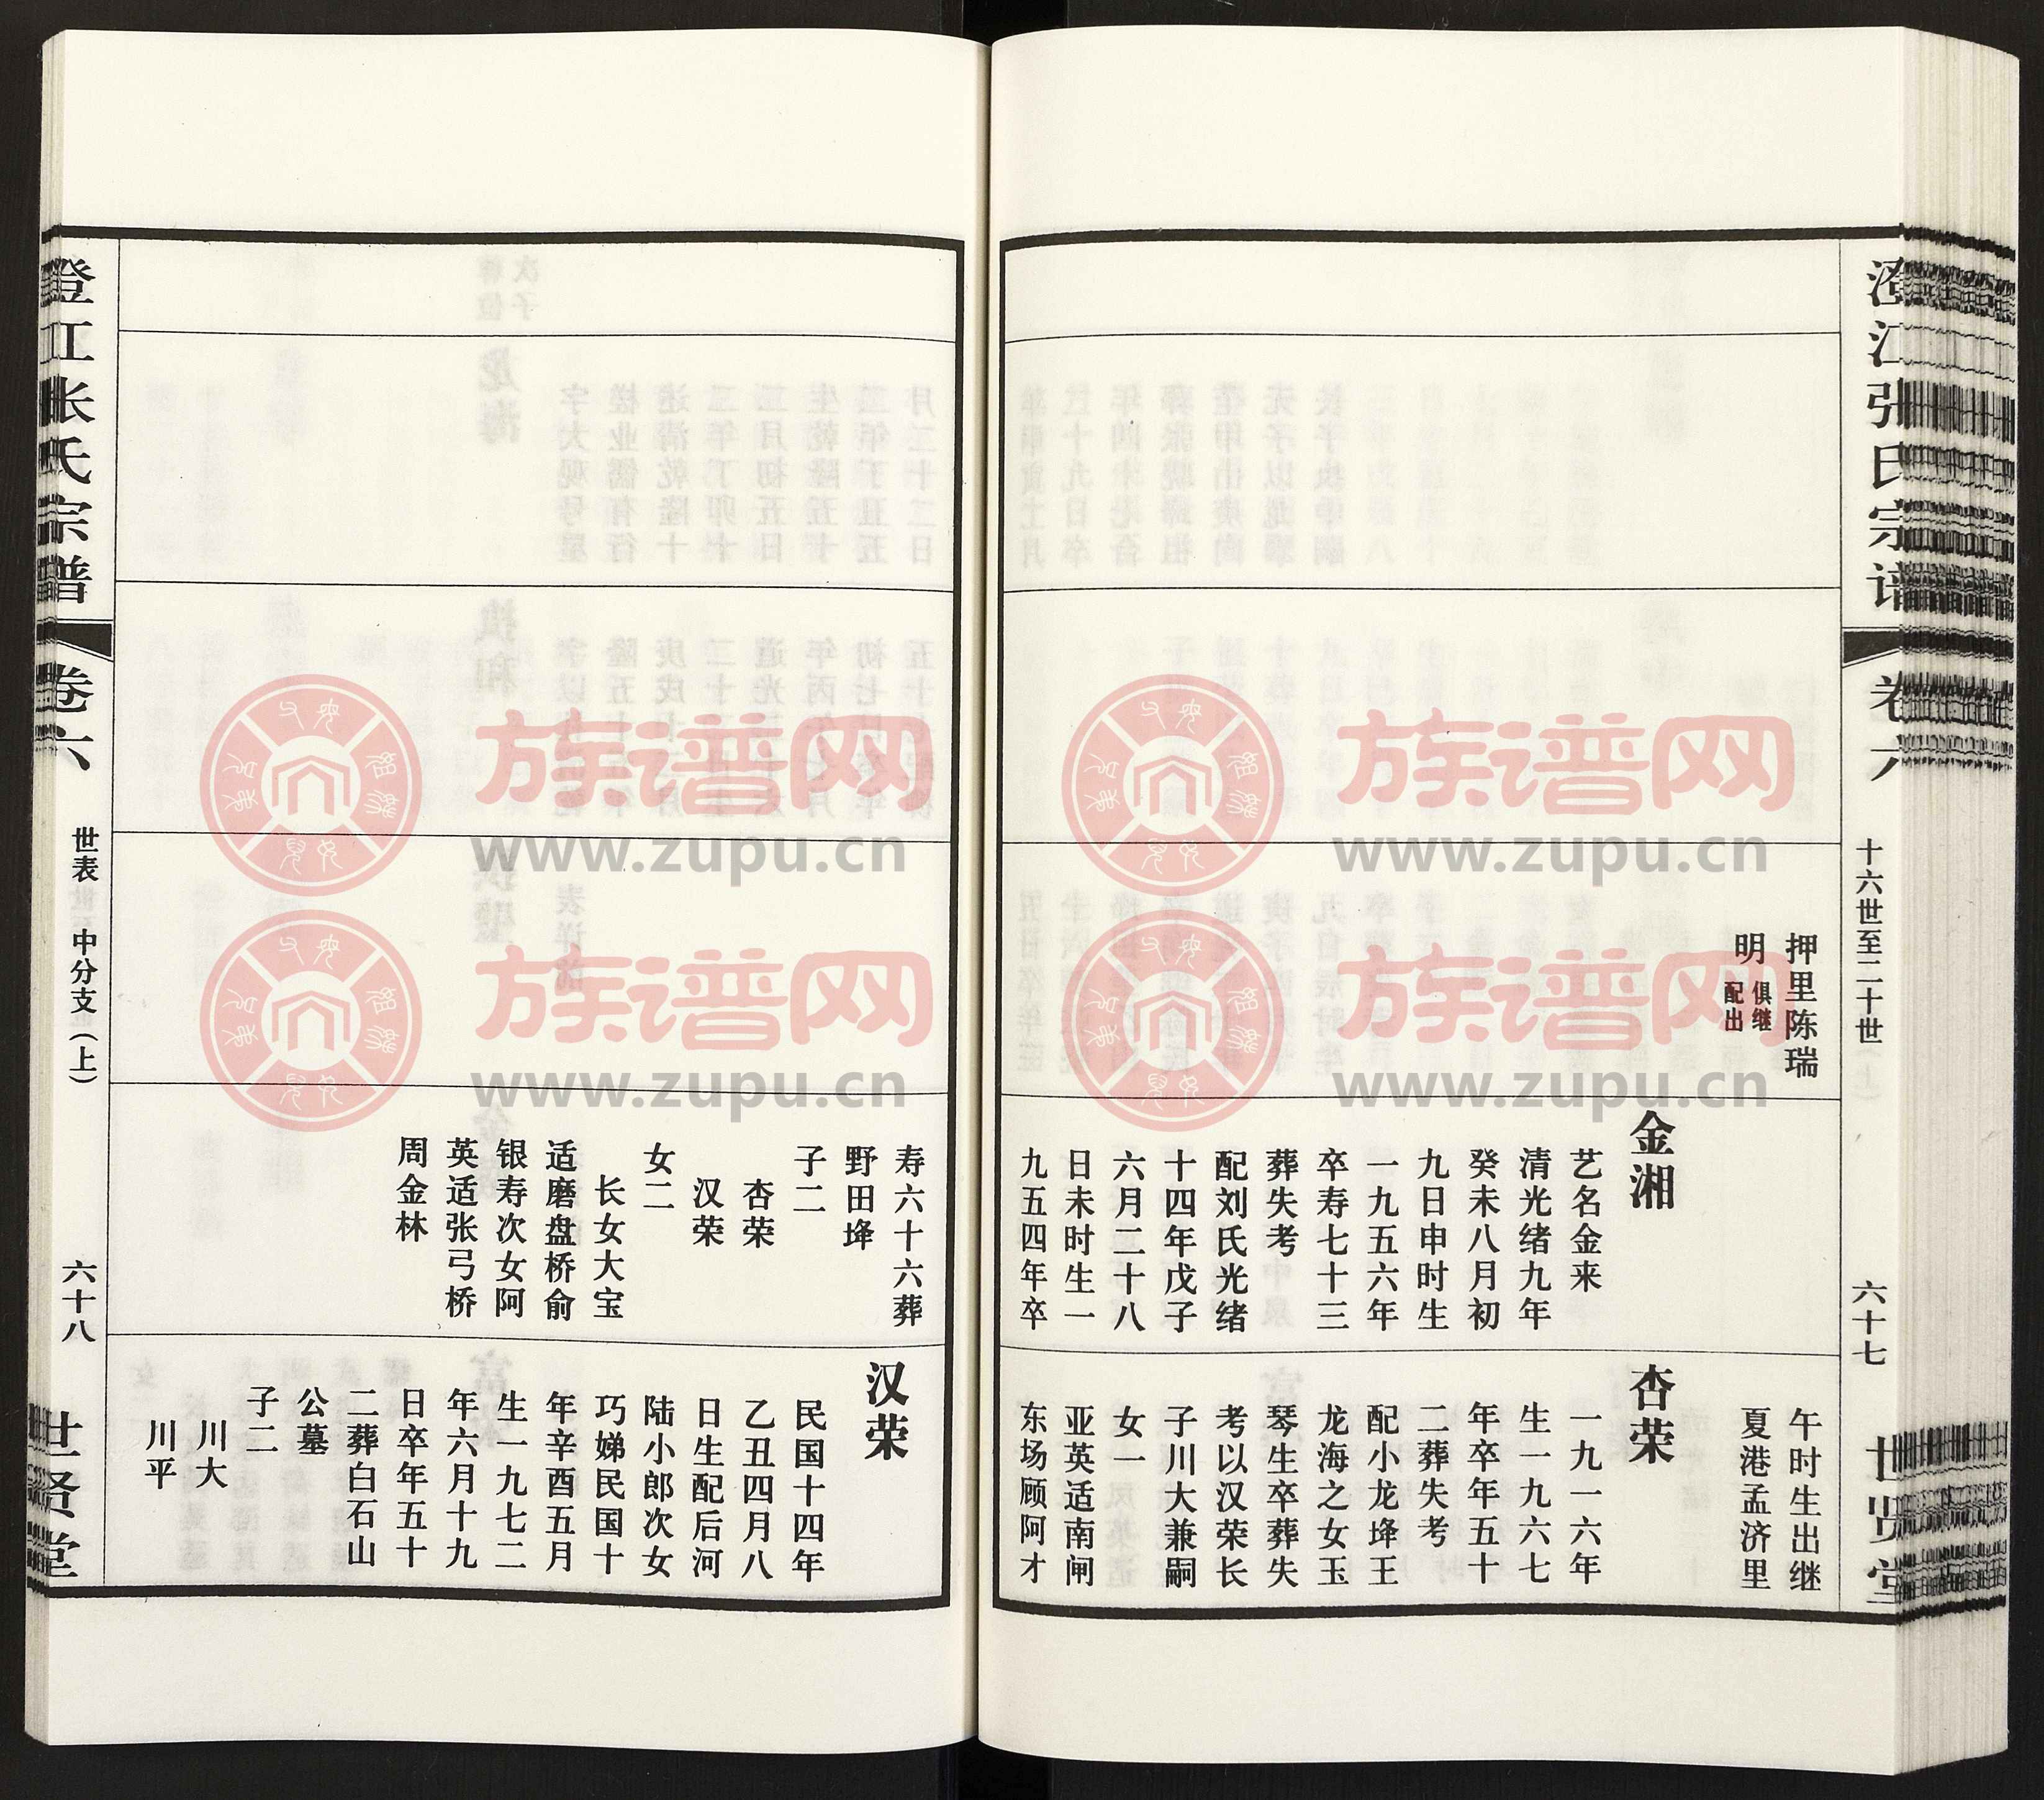 澄江张氏宗谱
卷六
十六世至二十世
六十七
世贤堂
押里陈瑞
明
俱继
配出
金湘
艺名金来
清光绪九年
癸未八月初
九日申时生
一九五六年
卒寿七十三
葬失考
配刘氏光绪
十四年戊子
六月二十八
日未时生一
九五四年卒
午时生出继
夏港孟济里
杏荣
一九一六年
生一九六七
年卒年五十
二葬失考
配小龙埄王
龙海之女玉
琴生卒葬失
考以汉荣长
子川大兼嗣
女一
亚英适南闸
东场顾阿才
寿六十六葬
野田埄
子二
杏荣
汉荣
女二
长女大宝
适磨盘桥俞
银寿次女阿
英适张弓桥
周金林
汉荣
民国十四年
乙丑四月八
日生配后河
陆小郎次女
巧娣民国十
年辛酉五月
生一九七二
年六月十九
日卒年五十
二葬白石山
公墓
子二
川大
川平
澄江张氏宗谱
卷六
世表 中分支（上）
六十八
世贤堂
族谱网
www.zupu.cn
族谱网
www.zupu.cn
族谱网
www.zupu.cn
族谱网
www.zupu.cn